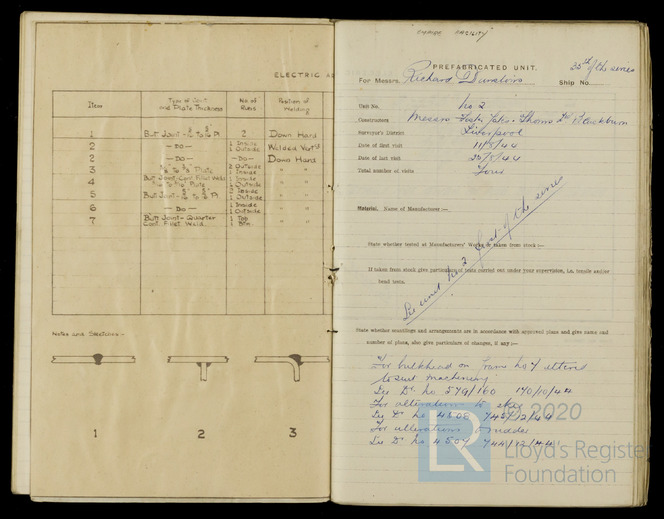 ELECTRIC A
Item
Type of Joint and Plate Thickness
No. of Runs
Position of Welding
1 Butt Joint - to Pl 2 Down Hand
2 - DO - 1 Inside 1 Outside Welded Vert'y
2 - DO - - DO - Down Hand
3 Plate 2 Outside 1 Inside " "
4 Butt Joint - Cont. Fillet Weld to Plate 1 Inside 1 Outside " "
5 Butt Joint - to Pl. 1 Inside 1 Outside " "
6 - DO - 1 Inside 1 Outside " "
7 Butt Joint - Quarter Cont. Fillet Weld. 1 Top 1 Btm. " "
Notes and Sketches -
1
2
3
FACILITY"
PREFABRICATED UNIT.
25th of the series
For Messrs. Richard Dunston
Ship No.
Unit No. No 2
Constructors Messrs Foster Yates & Thom Ltd Blackburn
Surveyor's District Liverpool
Date of first visit 11/5/44
Date of last visit 25/5/44
Total number of visits Four
Material. Name of Manufacturer:—
State whether tested at Manufacturers' Works or taken from stock:—
If taken from stock give particulars of tests carried out under your supervision, i.e. tensile and/or
bend tests.
See unit No 2 first of the series
State whether scantlings and arrangements are in accordance with approved plans and give name and
number of plans, also give particulars of changes, if any:—
For bulkhead on frame No 7 altered
to suit machinery
See Dr. No 579/160 170/10/44
For alteration to skeg
See Dr No 4508 743/12/44
For alterations to rudder
See Dr No 4507 744/12/44
LR
© 2020
Lloyd's Register
Foundation